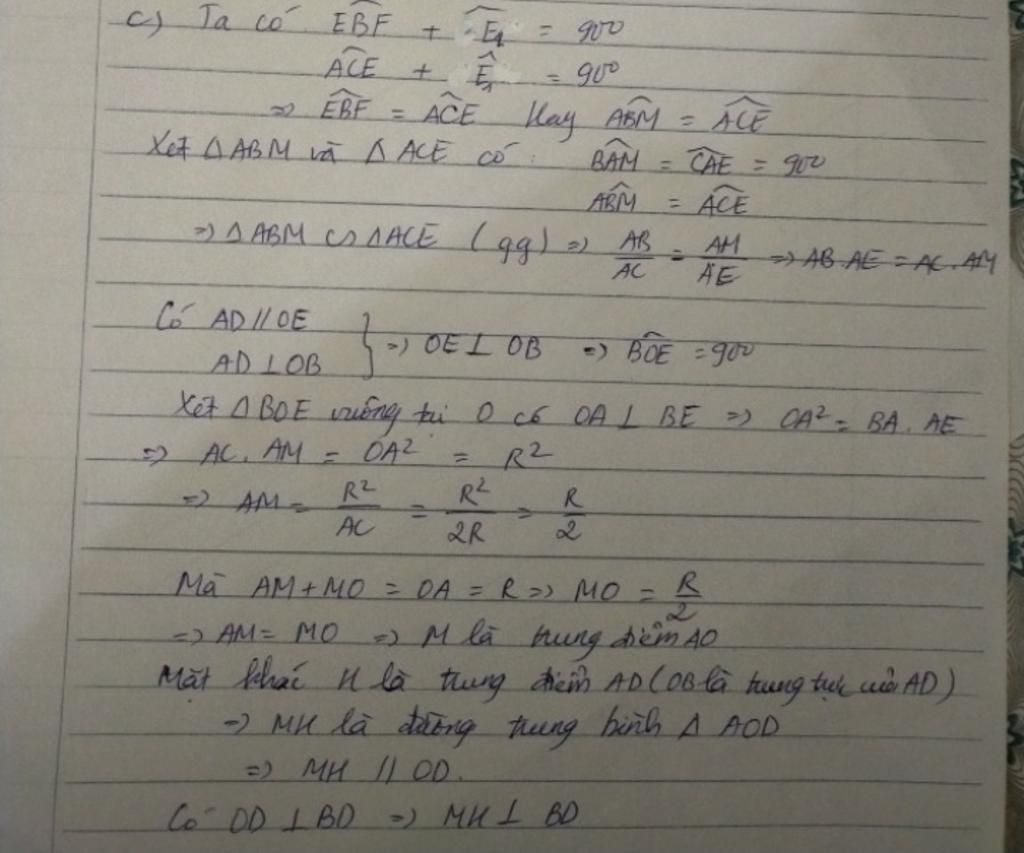 c) Ta có EBF^ + E1^ = 90°
ACE^ + E1^ = 90°
=> EBF^ = ACE^ Hay ABM^ = ACE^
Xét ΔABM và ΔACE có: BAM^ = CAE^ = 90°
ABM^ = ACE^
=> ΔABM ∽ ΔACE (gg) => AB/AC = AM/AE => AB.AE = AC.AM
Có AD // OE
AD ⊥ OB } => OE ⊥ OB => BOE^ = 90°
Xét ΔBOE vuông tại O có OA ⊥ BE => OA² = BA.AE
=> AC.AM = OA² = R²
=> AM = R²/AC = R²/2R = R/2
Mà AM + MO = OA = R => MO = R/2
=> AM = MO => M là trung điểm AO
Mặt khác H là trung điểm AD (OB là trung trực của AD)
=> MH là đường trung bình Δ AOD
=> MH // OD.
Có OD ⊥ BD => MH ⊥ BD